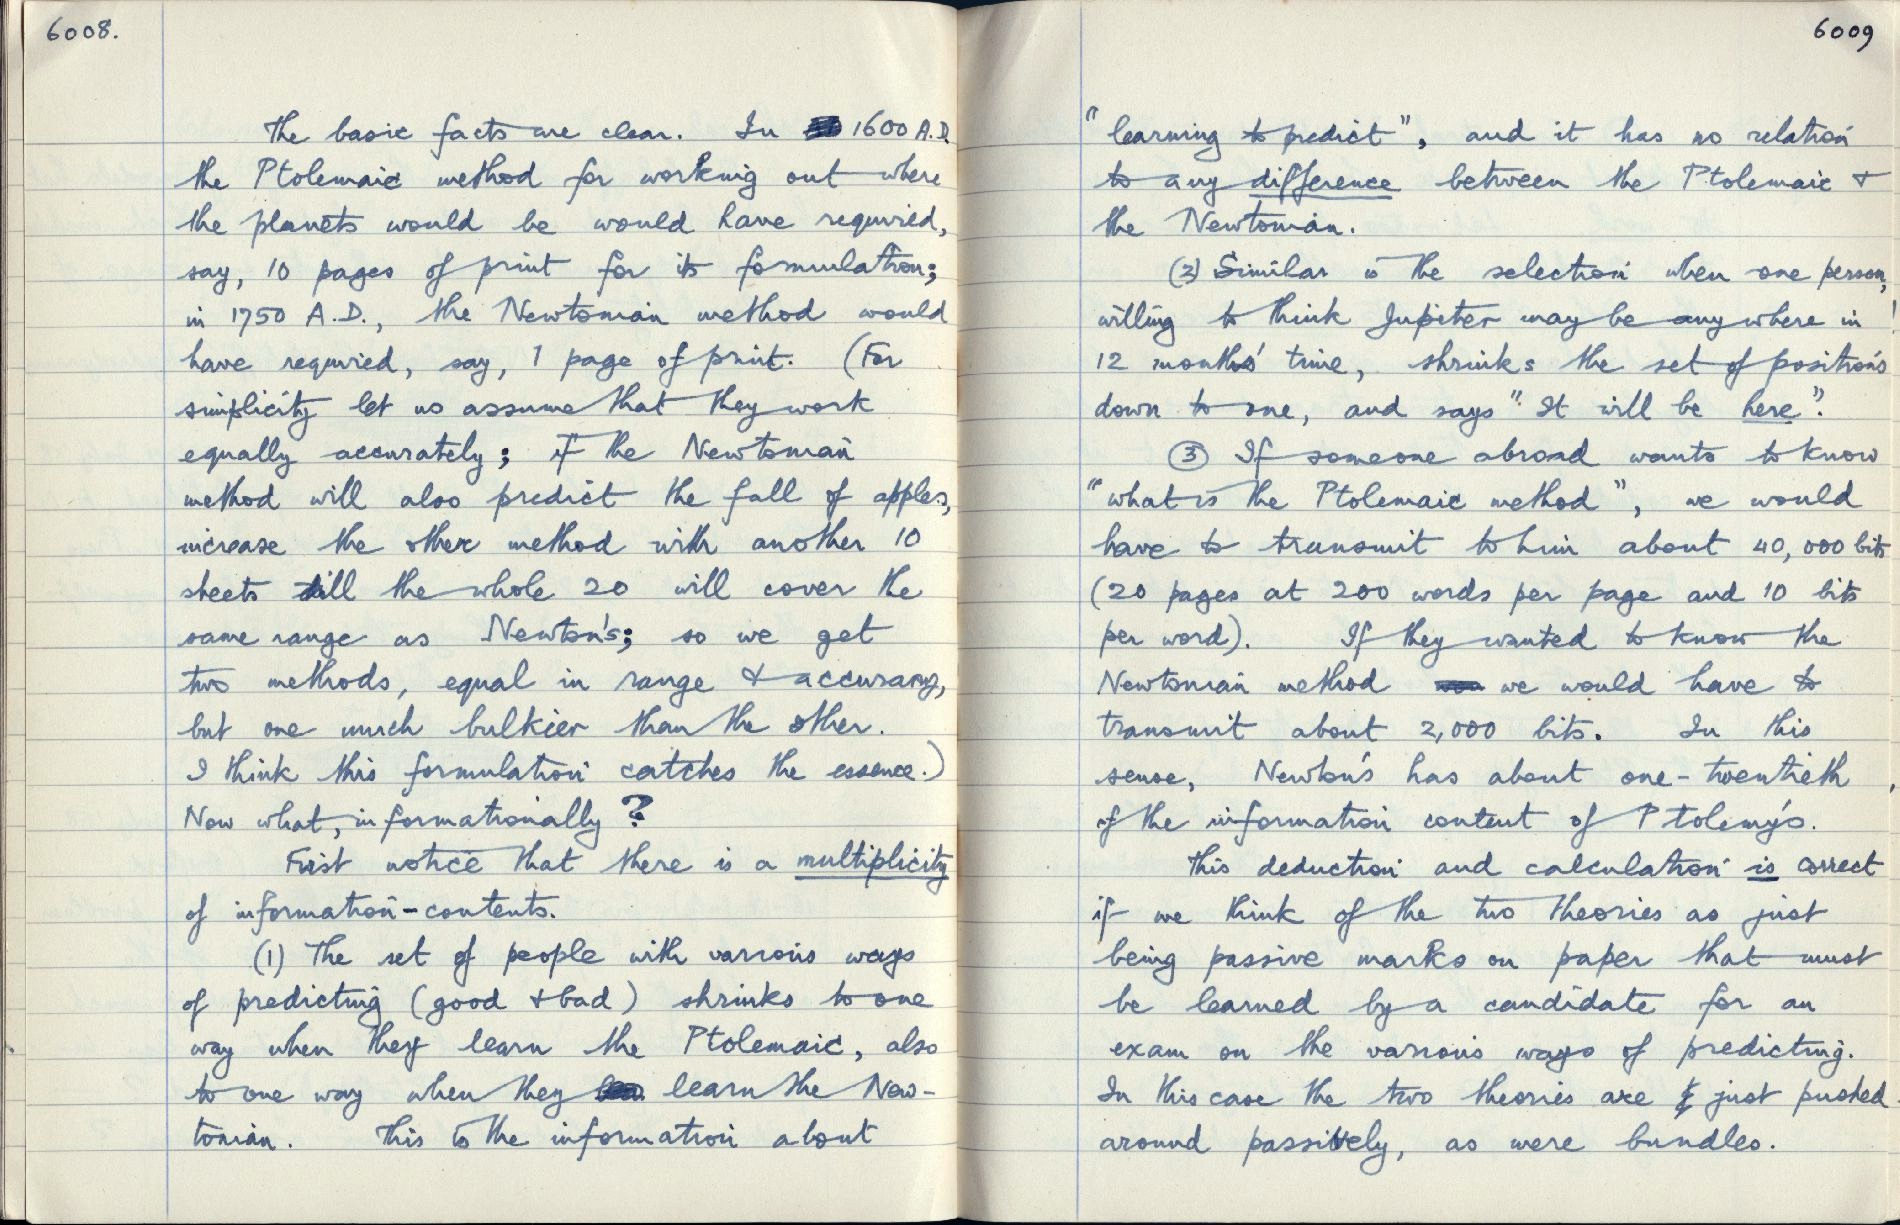 6008.
The basic facts are clear. In 1600 A.D.
the Ptolemaic method for working out where
the planets would be would have required,
say, 10 pages of print for its formulation;
in 1750 A.D., the Newtonian method would
have required, say, 1 page of print. (For
simplicity let us assume that they work
equally accurately; if the Newtonian
method will also predict the fall of apples,
increase the other method with another 10
sheets till the whole 20 will cover the
same range as Newton's; so we get
two methods, equal in range & accuracy,
but one much bulkier than the other.
I think this formulation catches the essence.)
Now what, informationally?
First notice that there is a multiplicity
of information-contents.
(1) The set of people with various ways
of predicting (good & bad) shrinks to one
way when they learn the Ptolemaic, also
to one way when they learn the New-
tonian. This is the information about
6009
"learning to predict", and it has no relation
to any difference between the Ptolemaic &
the Newtonian.
(2) Similar is the selection when one person,
willing to think Jupiter may be anywhere in
12 months' time, shrinks the set of positions
down to one, and says "It will be here".
(3) If someone abroad wants to know
"what is the Ptolemaic method", we would
have to transmit to him about 40,000 bits
(20 pages at 200 words per page and 10 bits
per word). If they wanted to know the
Newtonian method we would have to
transmit about 2,000 bits. In this
sense, Newton's has about one-twentieth
of the information content of Ptolemy's.
This deduction and calculation is correct
if we think of the two theories as just
being passive marks on paper that must
be learned by a candidate for an
exam on the various ways of predicting.
In this case the two theories are just pushed
around passively, as were bundles.